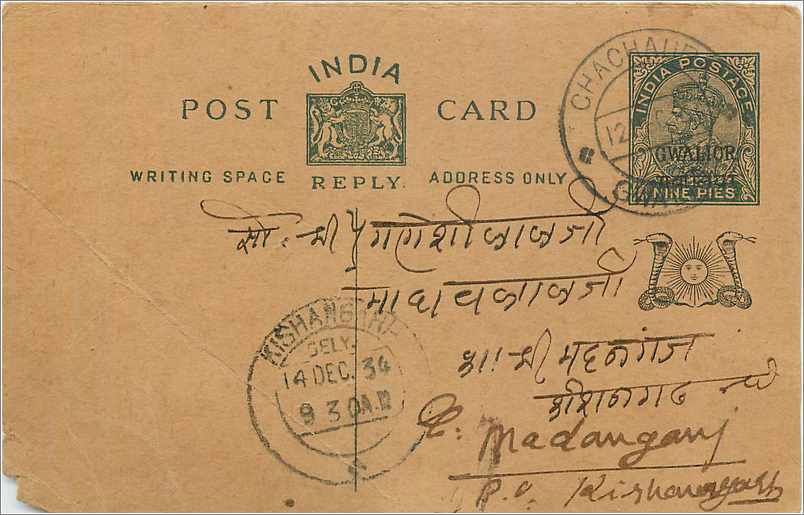 INDIA
POST CARD
WRITING SPACE REPLY. ADDRESS ONLY
INDIA POSTAGE
GWALIOR
NINE PIES
12
सो. श्री गणेशीलालजी
माधवलालजी
श्री मदनगंज
कीशनगढ
Madanganj
P.O. Kishangarh
KISHANGARH
DELY.
14 DEC. 34
9 30A.M